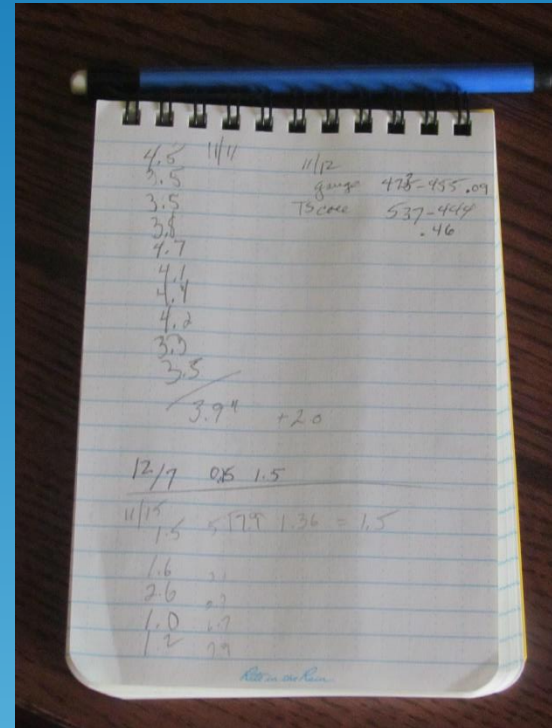 4.5 11/11
3.5
3.5
3.8
4.7
4.1
4.4
4.2
3.3
3.5
3.9" +2.0
11/12
gauge 455 .09
TScore 537-444
.46
12/7 1.5
11/15
1.5 5 7.9 1.36 = 1.5
1.6
2.6
1.0
1.2 7.9
Rite in the Rain